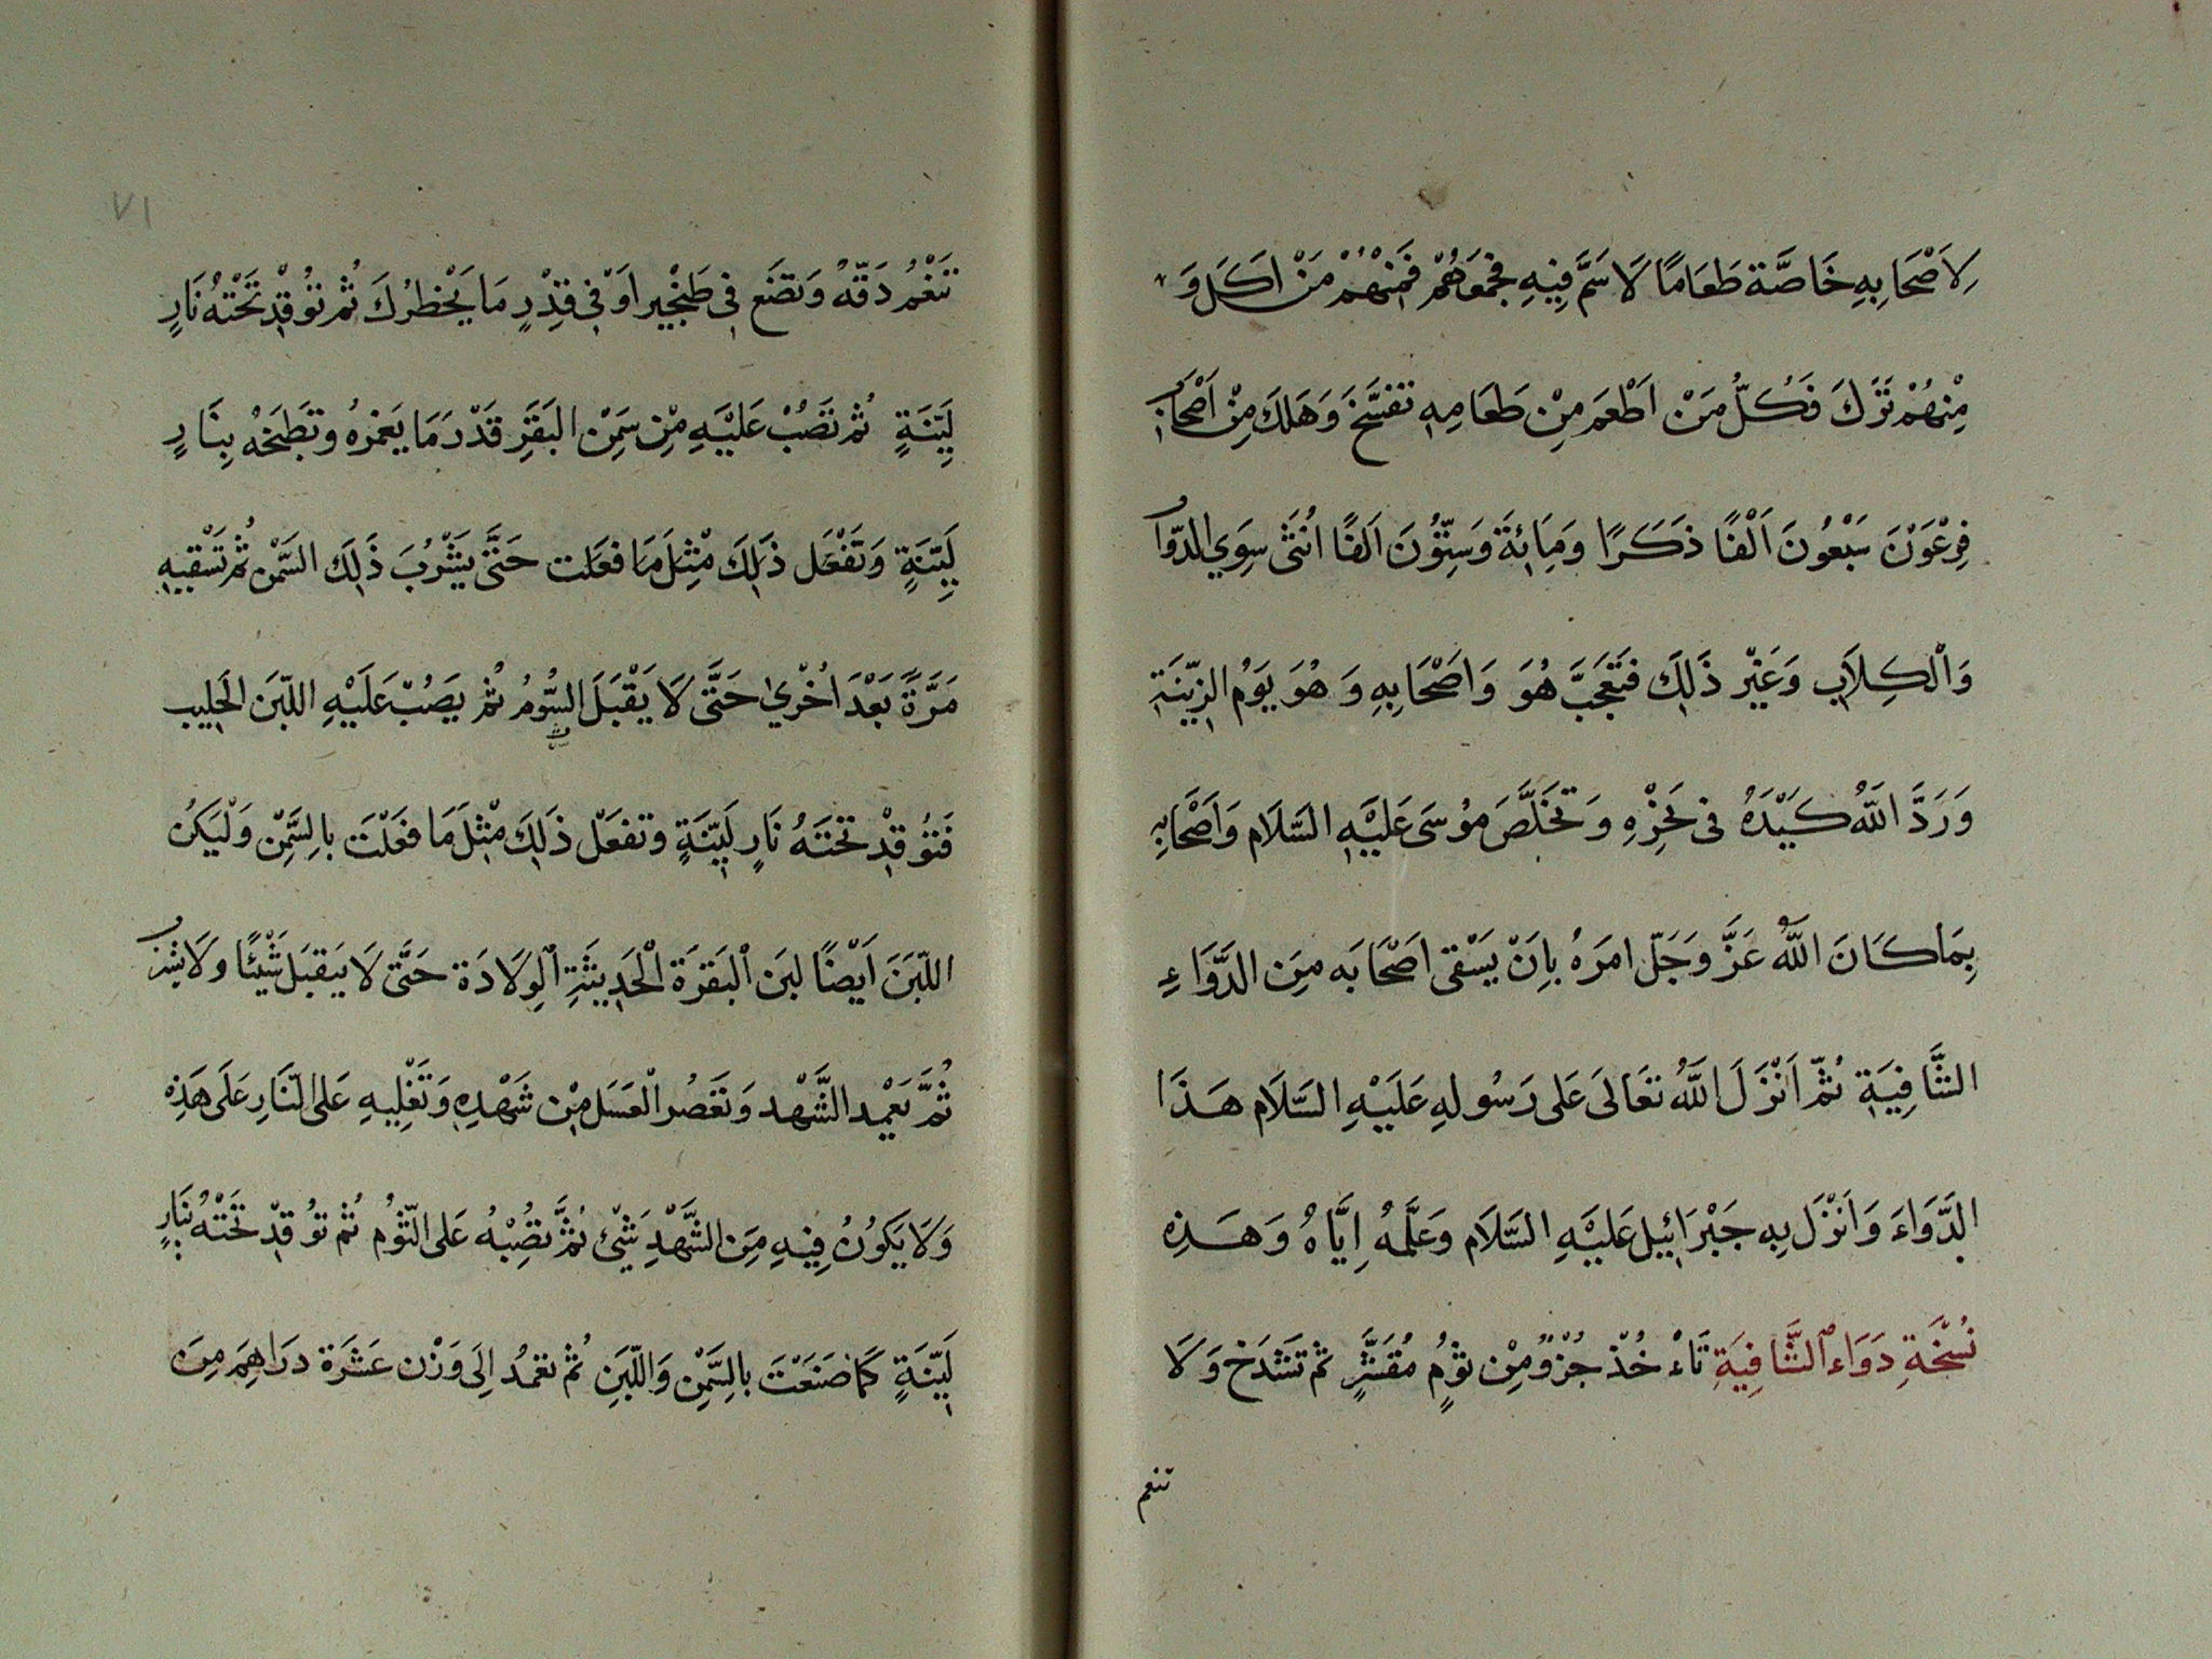 لِاَصْحَابِهِ خَاصَّة طَعَامًا لَا سَمَّ فِيهِ فَجَمَعَاهُمْ فَمِنْهُمْ مَنْ اَكَلَ وَ
مِنْهُمْ تَرَكَ فَكُلُّ مَنْ اَطْعَمَ مِنْ طَعَامِهِ تفسَّخَ وَهَلَكَ مِنْ اَصْحَابِ
فِرْعَوْنَ سَبْعُونَ اَلْفًا ذَكَرًا وَمِائَة وَسِتُّونَ اَلفًا اُنثَى سِوَي الدّوَابِ
وَالْكِلَابِ وَغَيْر ذَلِكَ فَتَعَجَّبَ هُوَ وَاَصْحَابِهِ وَهُوَ يَوْمُ الزِّينَةِ
وَرَدَّ اللّٰهُ كَيْدَهُ فى نَحْرِهِ وَتَخَلَّصَ مُوسَى عَلَيْهِ السَّلَام وَاَصْحَابِهِ
بِمَا كَانَ اللّٰهُ عَزَّ وَجَلّ امَرَهُ بِاَنْ يَسْقى اَصْحَابَه مِنَ الدَّوَاءِ
الشَّافِيَةِ ثمّ اَنْزَلَ اللّٰهُ تَعَالَى عَلَى رَسُولِهِ عَلَيْهِ السَّلَام هَذَا
الدَّوَاءَ وَاَنْزَل بِهِ جَبْرَائِيل عَلَيْهِ السَّلَام وَعَلَّمَهُ اِيَّاهُ وَهَذِهِ
نُسْخَةِ دَوَاء الشَّافِيَةِ تَاْ خُذْ جُزْوٌ مِنْ ثُوْمٍ مُقَشَّرٍ ثم تَشْدَخ وَلَا
تنعم
٧١
تَنْعُمُ دَقّهُ وَتضَع فِى طَنْجِير اَوْ فِى قِدْرٍ مَا يَحْظرُكَ ثُم تُوقِدْ تَحْتهُ نَارٍ
لَيِّنَةٍ ثُم تَصُبْ عَلَيْهِ مِنْ سَمِنَ البَقَرِ قَدْرَ مَا يَغمرُهُ وتَطبَخهُ بِنَارٍ
لَيِّنَةٍ وَتَفْعَل ذَلِكَ مْثِلَ مَا فعَلت حَتَّى يَشْرُبَ ذَلِكَ السَّمْن ثُم تَسْقيهِ
مَرَّةً بَعْدَ اُخْري حَتَّى لَا يَقْبَلَ السُّومُ ثُم يصَبُ عَلَيْهِ اللّبَن الحَلِيب
فَتُوقِدْ تَحْتَهُ نَارٍ لَيِّنَةٍ وتفعَلْ ذَلِكَ مْثِلَ مَا فعَلْتَ بالِسَّمْنِ وَلْيَكنُ
اللّبَنَ اَيْضًا لبَن اْلبَقَرَة الْحَدِيثَةِ الْوِلَادَة حَتَّى لَا يَقبَل شَيْئًا وَلَا يشرَبُ
ثُمَّ يَعْمِد الشَّهْد وَتعَصُر الْعَسَل مِنْ شَهْدِهِ وَتَغْلِيهِ عَلى النَّارِ عَلَى هَذِهِ
وَلَا يَكُونُ فِيهِ مِنَ الشَّهْدِ شَيْئ ثمَّ تصُبْهُ عَلى الثّوُم ثُم تُوقِدْ تَحْتَهُ بِنَارٍ
لَيِّنَةٍ كَمَا صَنَعْتَ بالِسَّمْنِ وَاللّبَنِ ثُم تعمُدُ اِلَى وَزْن عَشَرَة درَاهِمَ مِنَ